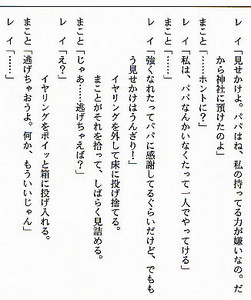 レイ「見せかけよ。パパはね、私の持ってる力が嫌いなの。だ
から神社に預けたのよ」
まこと「……ホントに？」
レイ「私は、パパなんかいなくたって一人でやってける」
まこと「……」
レイ「強くなれたってパパに感謝してるぐらいだけど、でもも
う見せかけはうんざり！」
イヤリングを外して床に投げ捨てる。
まことがそれを拾って、しばらく見詰める。
まこと「じゃあ……逃げちゃえば？」
レイ「え？」
イヤリングをポイッと箱に投げ入れる。
まこと「逃げちゃおうよ。何か、もういいじゃん」
レイ「……」